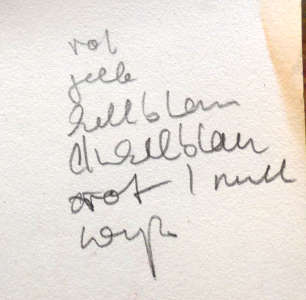 rot
gelb
hellblau
dunkelblau
rot 1 mal
weiß